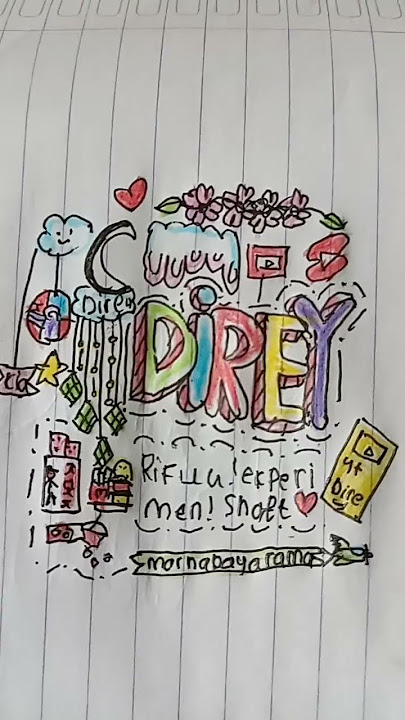 Direy
DiREY
Rifuu!experi
men! Shoft
yt
Dire
mornabayarama